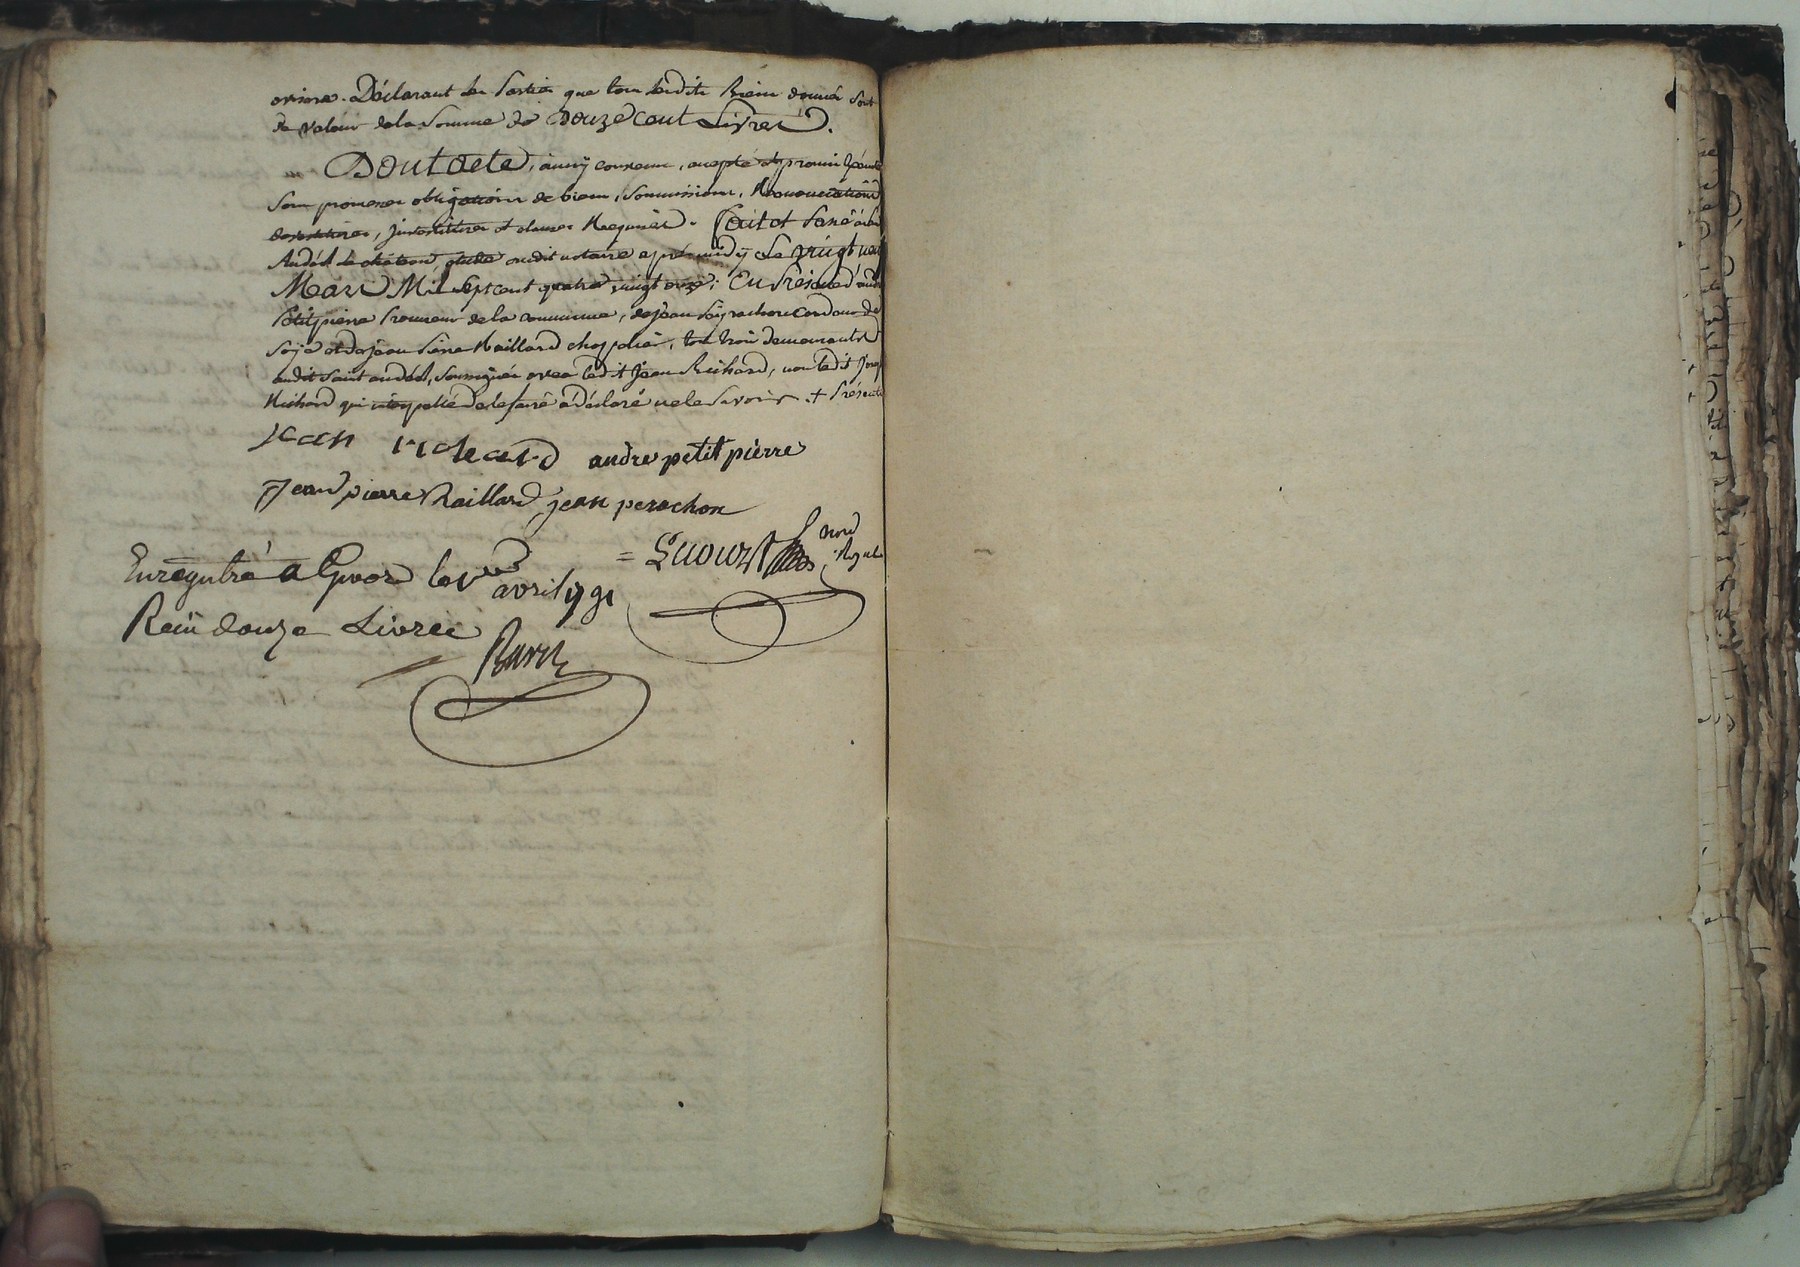 Déclarant les Parties que tous lesdits Biens donnés sont
de valeur de la somme de Douze cent Livres.
Dont acte, ainsy convenu, accepté et promis
sous promesses obligations de biens, soumissions, Renonciations
et clauses Requises. Fait et Passé à St
Andéol le château, étude dudit notaire après midy Le vingt neuf
Mars Mil Sept cent quatre vingt onze; En Présence d'andré
Petitpierre Procureur de la commune, de jean
Soye et de jean Pierre Raillard chappelier, tous trois demeurants
audit Saint andéol, soussignés avec ledit Jean Richard, non ledit
Richard qui interpellé de le faire a déclaré ne le savoir. +
jean richard andre petit pierre
Jean pierre Raillard jean perachon
nore
Royal
Enregistré a Givors le
avril 1791
Reçu douze Livres